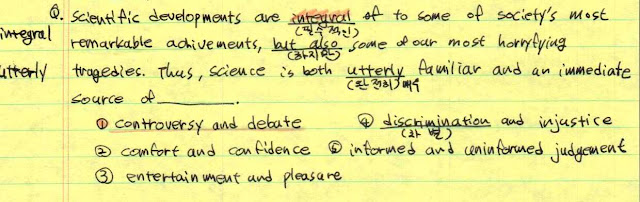 Q. Scientific developments are integral of to some of society's most
integral
(필수적인)
remarkable achivements, but also some of our most horrifying
(하지만)
utterly
tragedies. Thus, science is both utterly familiar and an immediate
(완전히) 매우
source of ________.
① controversy and debate ④ discrimination and injustice
(차별)
② comfort and confidence ⑤ informed and uninformed judgement
③ entertainment and pleasure